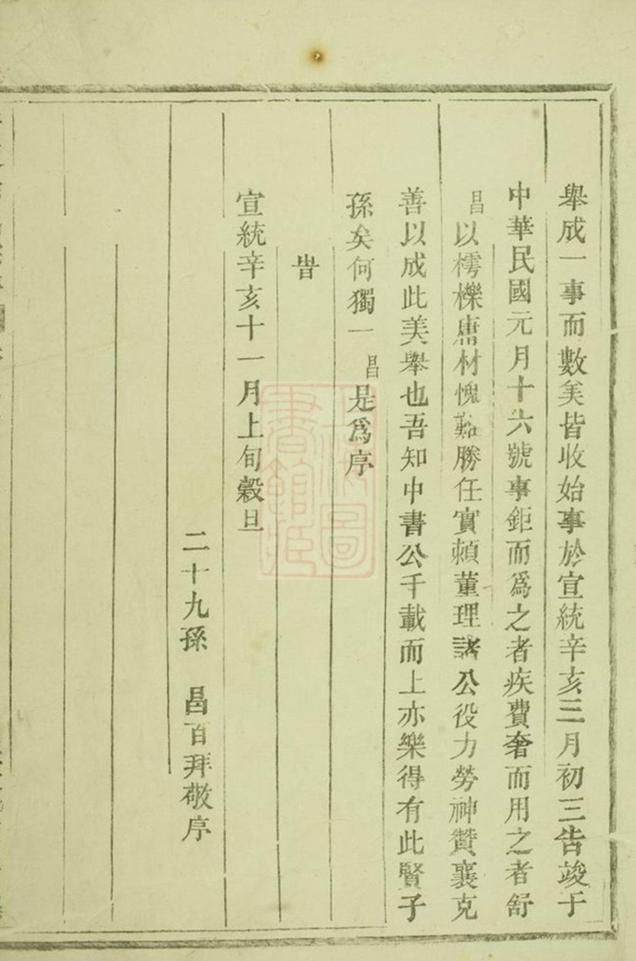 舉成一事而數美皆收始事於宣統辛亥三月初三告竣于
中華民國元月十六號事鉅而爲之者疾費奢而用之者舒
昌以樗櫟庸材愧難勝任實賴董理諸公役力勞神贊襄克
善以成此美舉也吾知中書公千載而上亦樂得有此賢子
孫矣何獨一昌是爲序
旹
宣統辛亥十一月上旬穀旦
二十九孫 昌百拜敬序